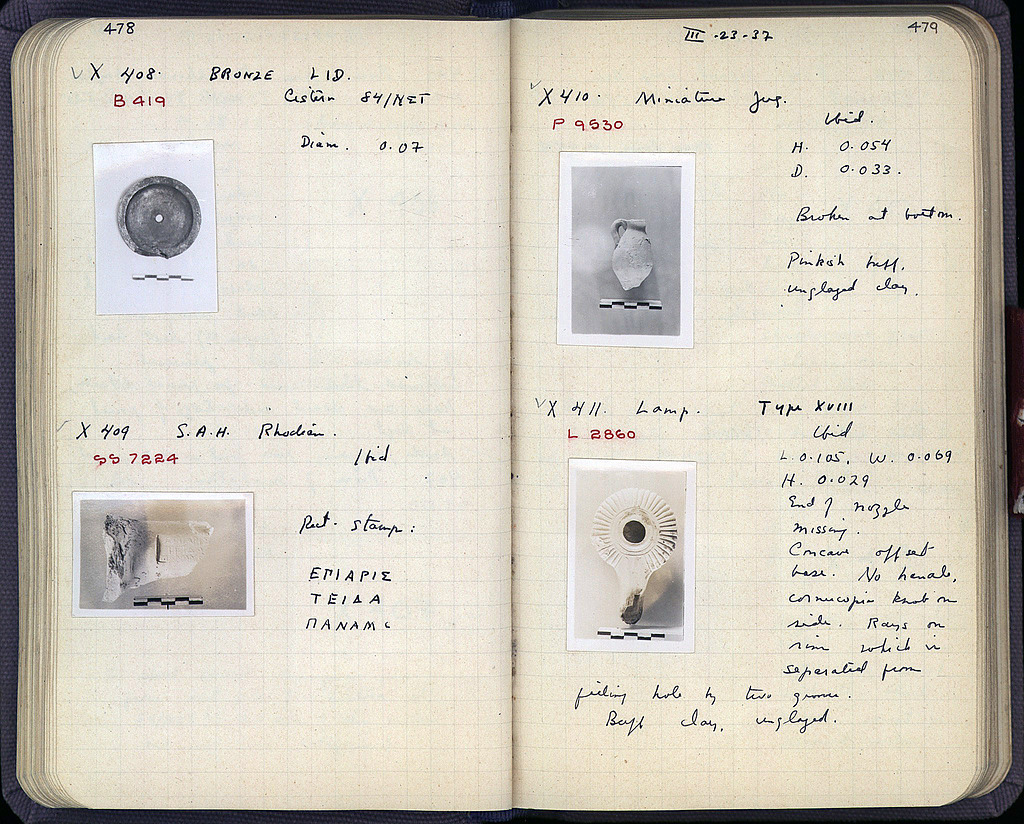 478
X 408. BRONZE LID.
B 419
Cistern 84/ΝΣΤ
Diam. 0.07
X 409 S.A.H. Rhodian.
SS 7224
Ibid
Rect. stamp:
ΕΠΙΑΡΙΣ
ΤΕΙΔΑ
ΠΑΝΑΜ
III-23-37
479
X 410. Miniature Jug.
P 9530
Ibid.
H. 0.054
D. 0.033.
Broken at bottom.
Pinkish buff,
unglazed clay.
X 411. Lamp. Type XVIII
L 2860
Ibid
L. 0.105, W. 0.069
H. 0.029
End of nozzle
missing.
Concave offset
base. No handle,
cornucopia knob on
side. Rays on
rim which is
separated from
filling hole by two grooves.
Buff clay, unglazed.